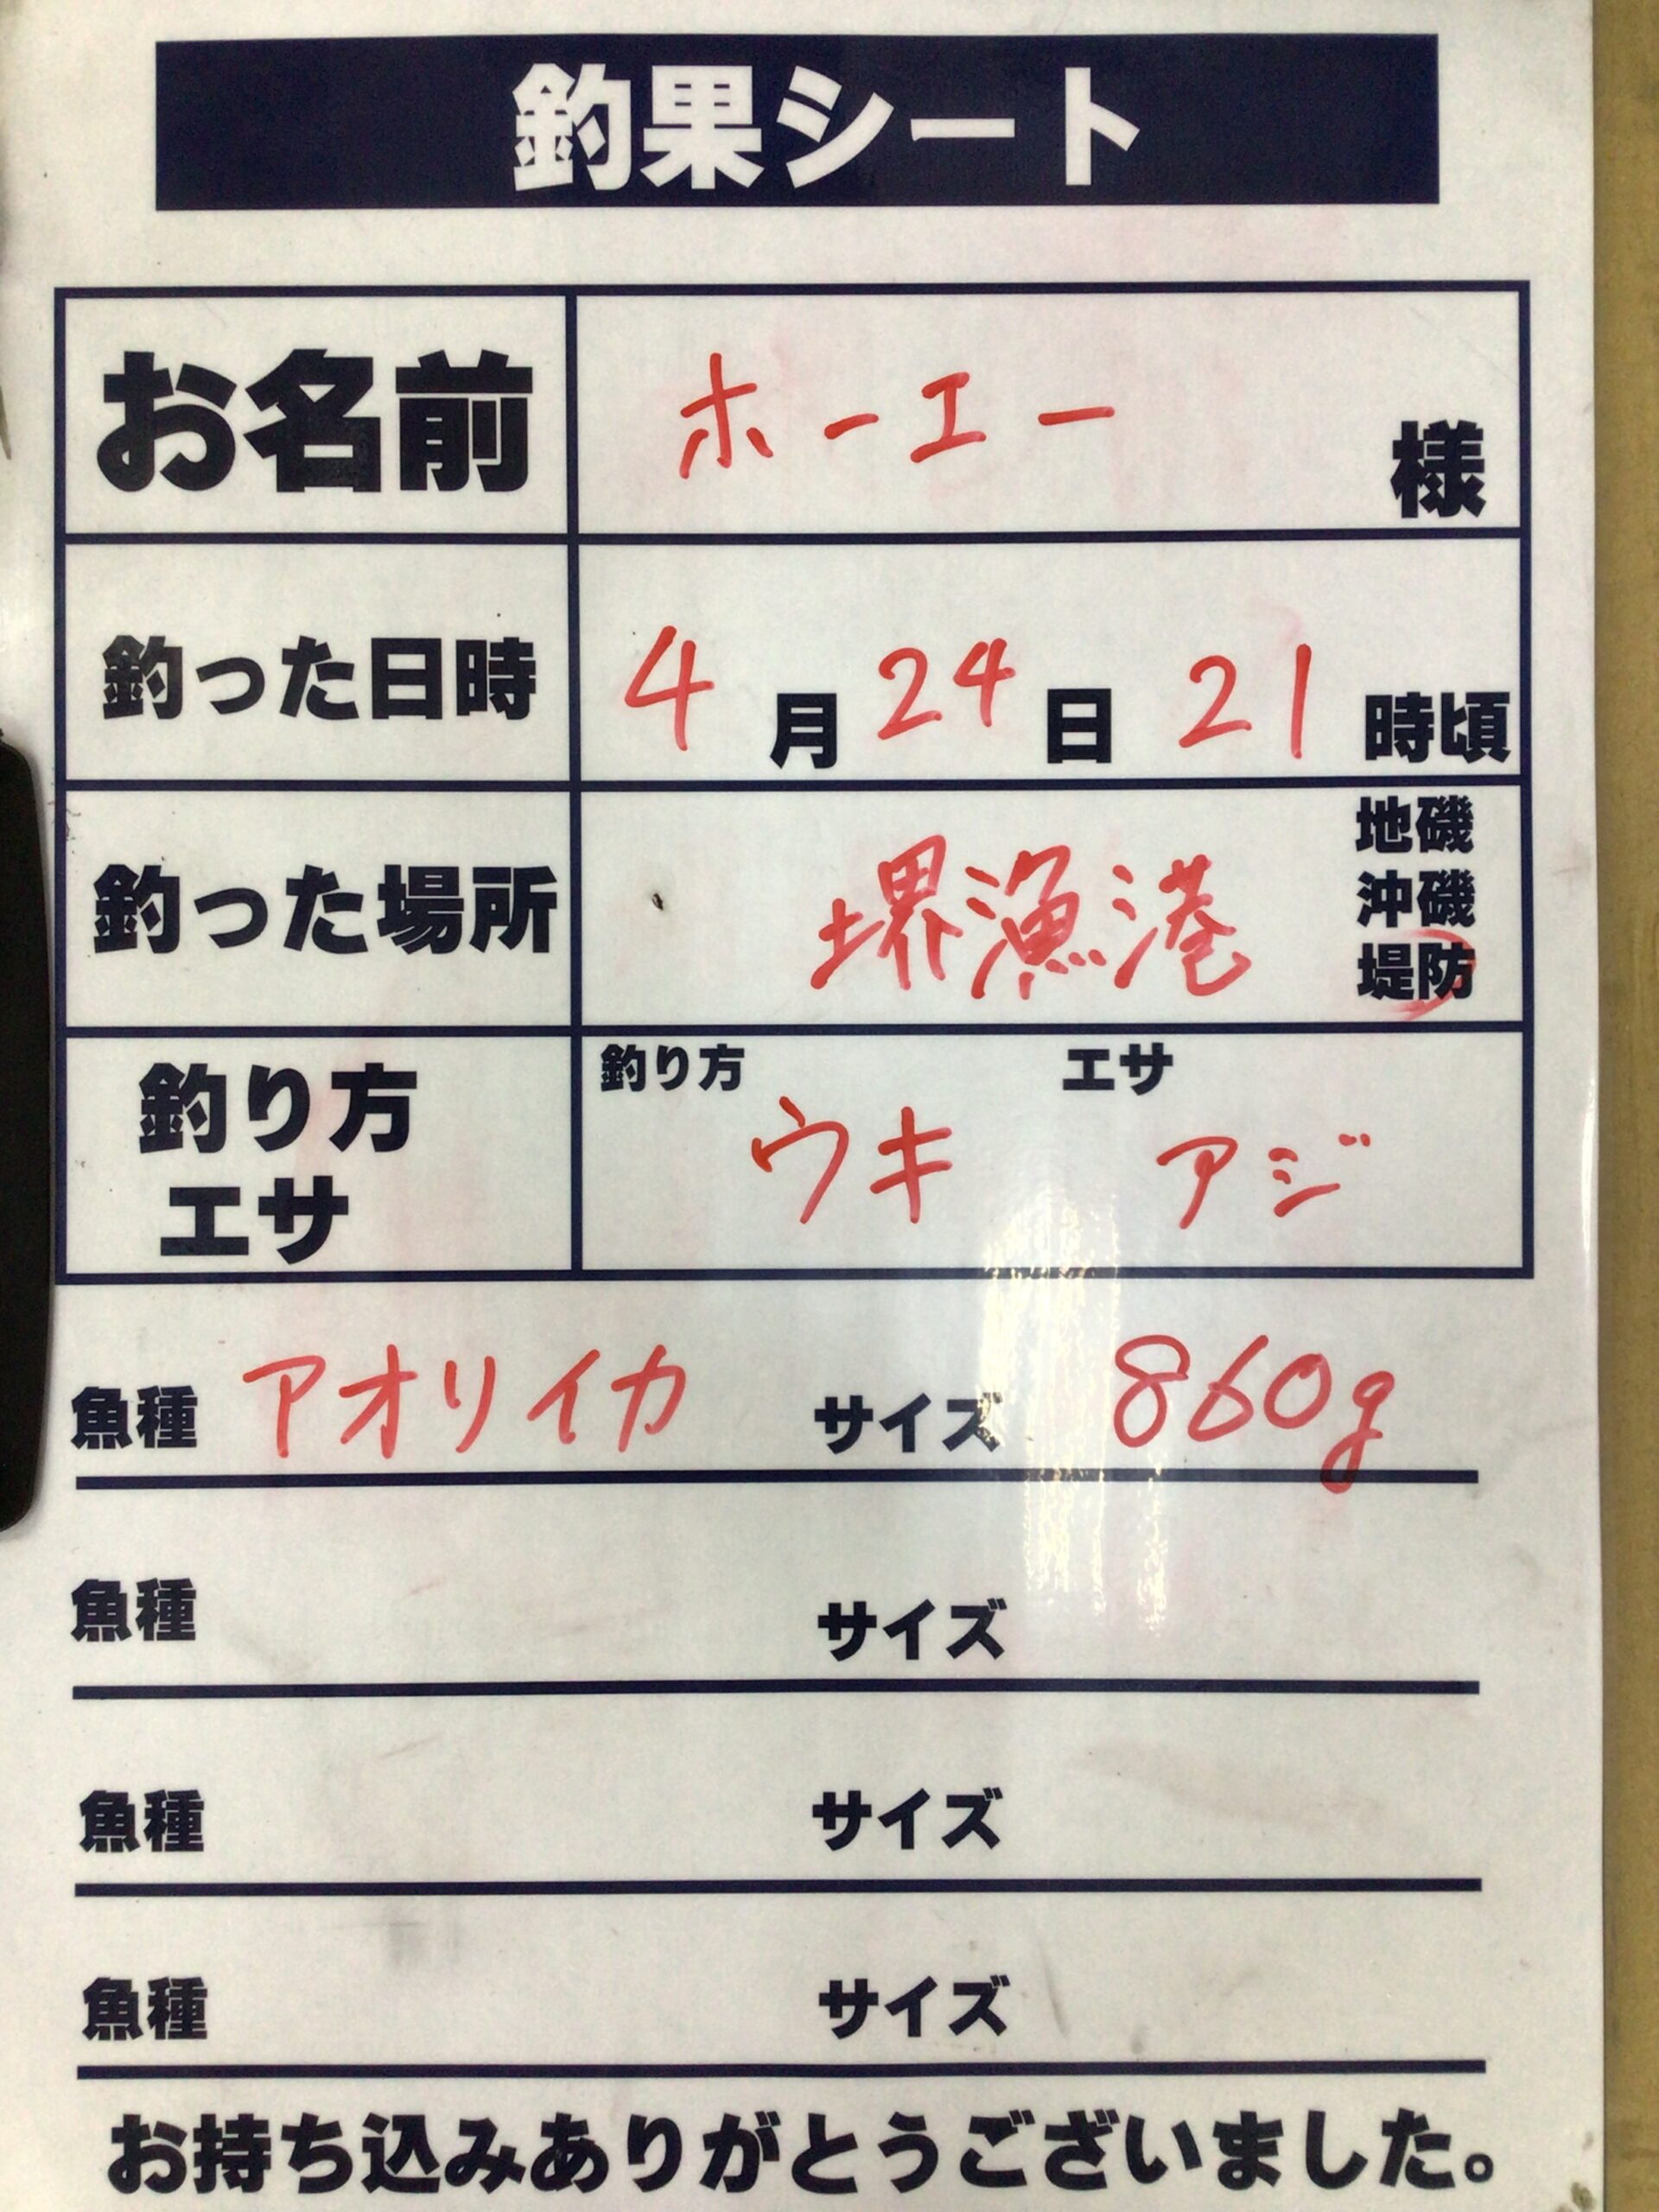 釣果シート
お名前 ホーエー 様
釣った日時 4月24日21時頃
釣った場所 堺漁港 地磯
沖磯
堤防
釣り方 エサ
釣り方 ウキ アジ
エサ
魚種 アオリイカ サイズ 860g
魚種 サイズ
魚種 サイズ
魚種 サイズ
お持ち込みありがとうございました。